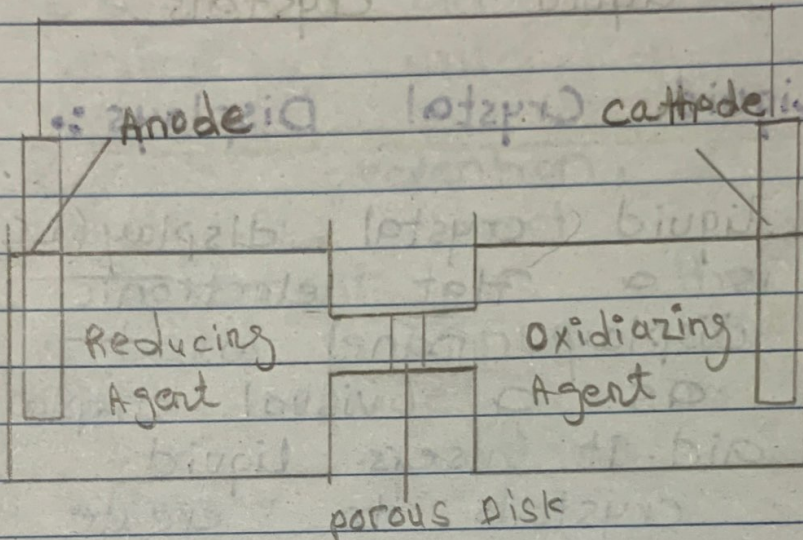 Anode
cathode
Reducing
Agent
Oxidiazing
Agent
porous Disk